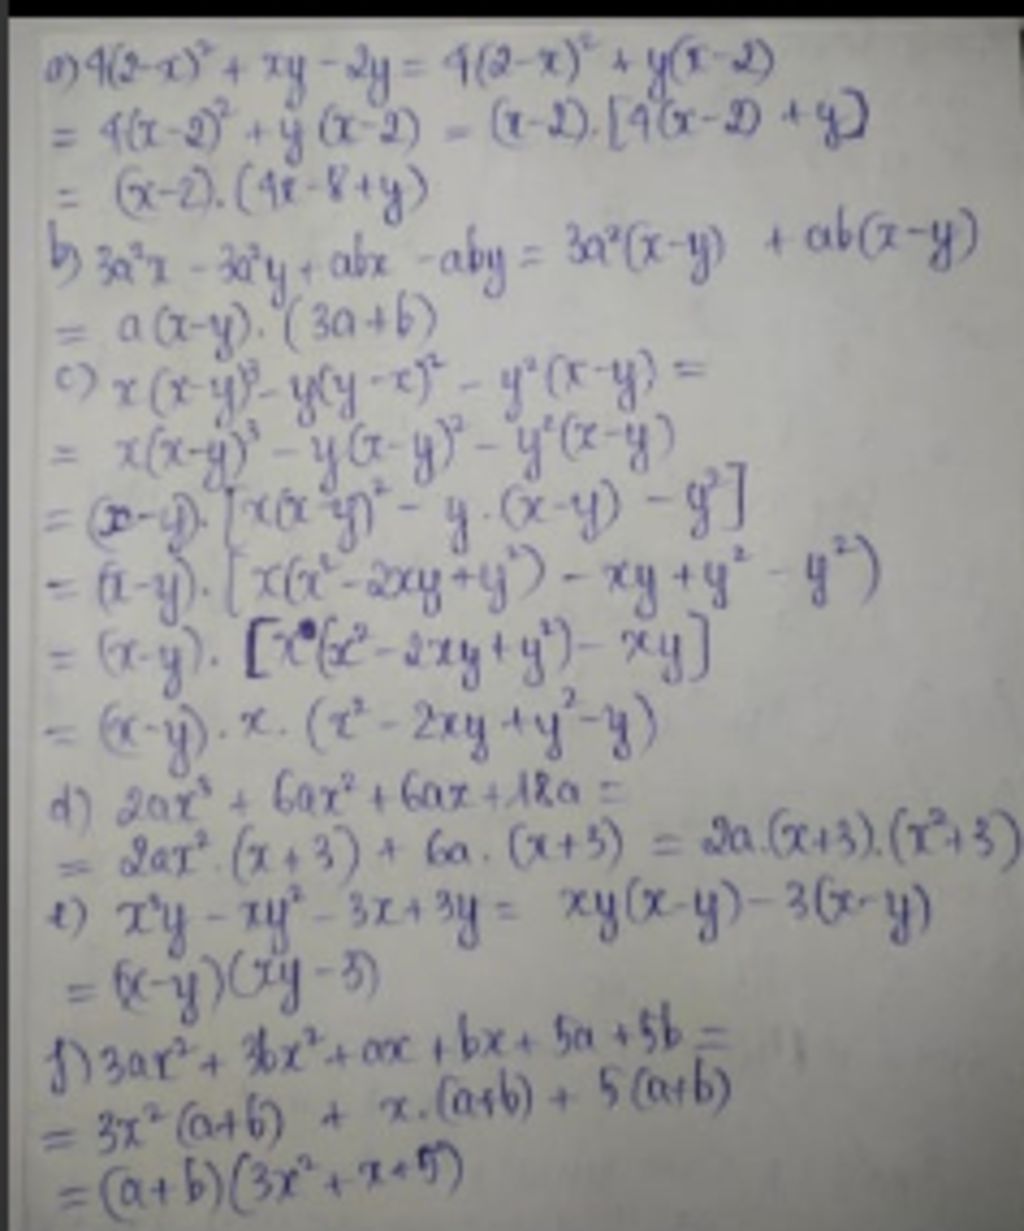 a) 4(2-x)² + xy - 2y = 4(2-x)² + y(x-2)
= 4(x-2)² + y(x-2) = (x-2).[4(x-2) + y]
= (x-2).(4x-8+y)
b) 3a²x - 3a²y + abx - aby = 3a²(x-y) + ab(x-y)
= a(x-y).(3a+b)
c) x(x-y)³ - y(y-x)² - y²(x-y) =
= x(x-y)³ - y(x-y)² - y²(x-y)
= (x-y).[x(x-y)² - y.(x-y) - y²]
= (x-y).[x(x²-2xy+y²) - xy + y² - y²)
= (x-y).[x(x²-2xy+y²) - xy]
= (x-y).x.(x²-2xy+y²-y)
d) 2ax³ + 6ax² + 6ax + 18a =
= 2ax².(x+3) + 6a.(x+3) = 2a.(x+3).(x²+3)
e) x²y - xy² - 3x + 3y = xy(x-y) - 3(x-y)
= (x-y)(xy-3)
f) 3ax² + 3bx² + ax + bx + 5a + 5b =
= 3x²(a+b) + x.(a+b) + 5(a+b)
= (a+b)(3x²+x+5)